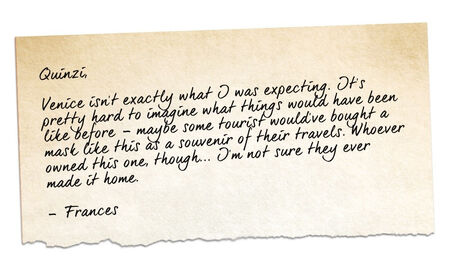 Quinzi,
Venice isn't exactly what I was expecting. It's
pretty hard to imagine what things would have been
like before – maybe some tourist would've bought a
mask like this as a souvenir of their travels. Whoever
owned this one, though... I'm not sure they ever
made it home.
– Frances